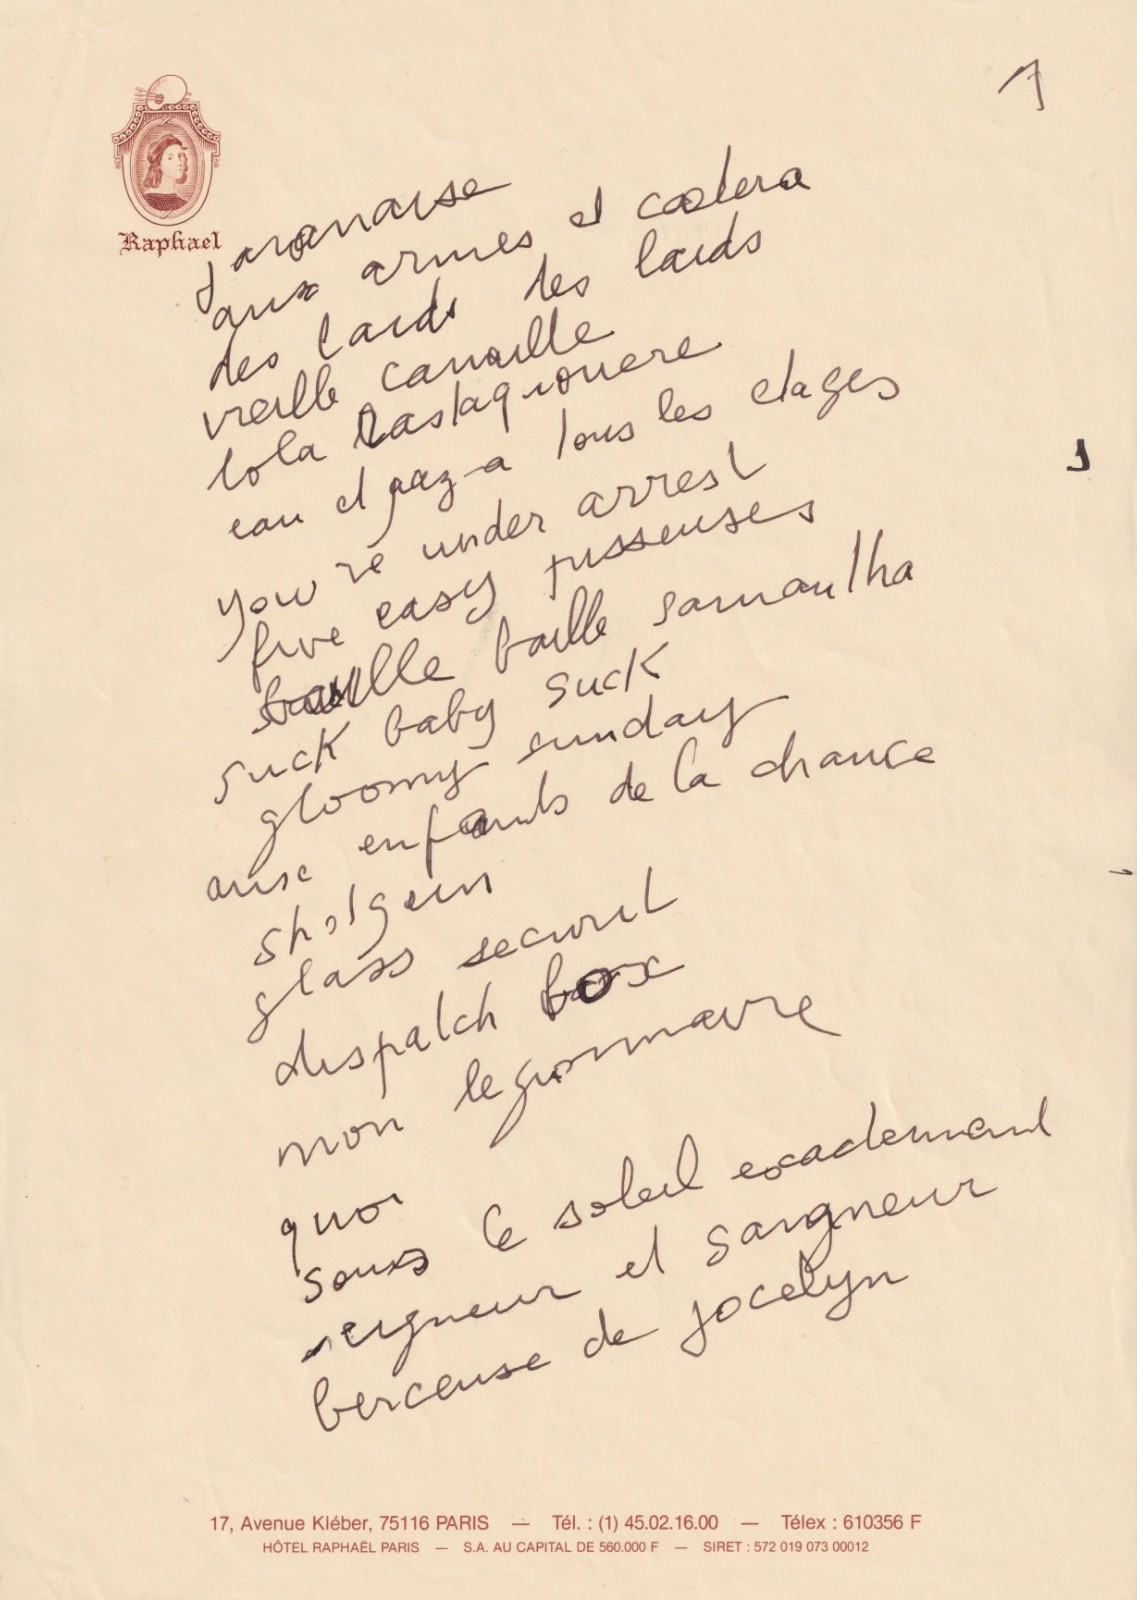 7
Raphael
javanaise
aux armes et caetera
des laids des laids
vieille canaille
lola Rastaquouere
eau et gaz a tous les etages
you're under arrest
five easy pisseuses
baille baille samantha
suck baby suck
gloomy sunday
aux enfants de la chance
shotgun
glass securit
dispatch box
mon legionnaire
quoi
sous le soleil exactement
seigneur et saigneur
berceuse de jocelyn
17, Avenue Kléber, 75116 PARIS — Tél. : (1) 45.02.16.00 — Télex : 610356 F
HÔTEL RAPHAËL PARIS — S.A. AU CAPITAL DE 560.000 F — SIRET : 572 019 073 00012